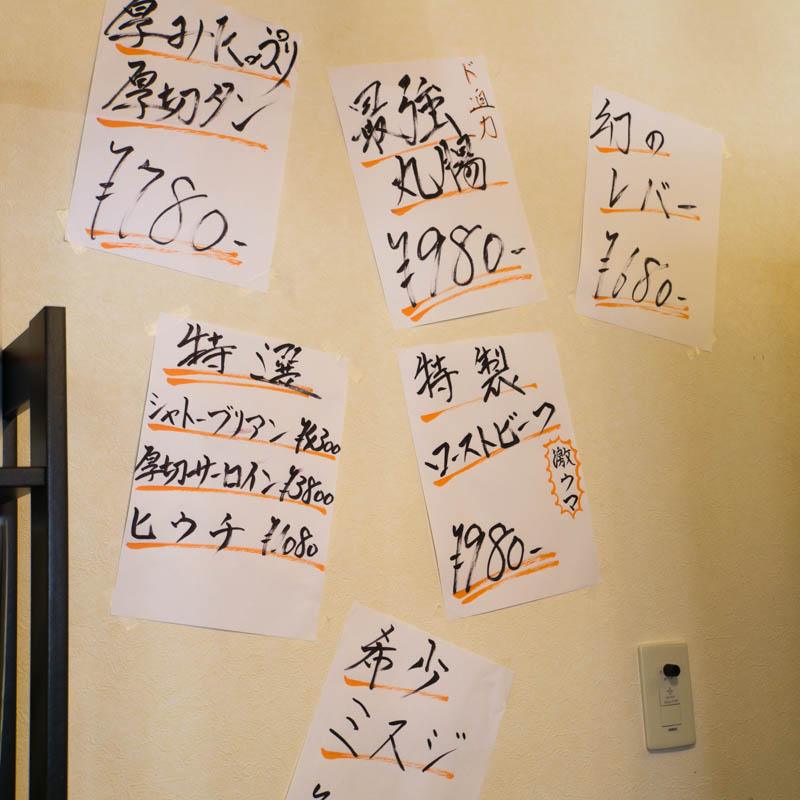 厚みたっぷり
厚切タン
¥780-
ド迫力
最強
丸腸
¥980-
幻の
レバー
¥680-
特選
シャトーブリアン
厚切サーロイン ¥3800
ヒウチ ¥1080
特製
ローストビーフ
激ウマ
¥980-
希少
ミスジ
¥